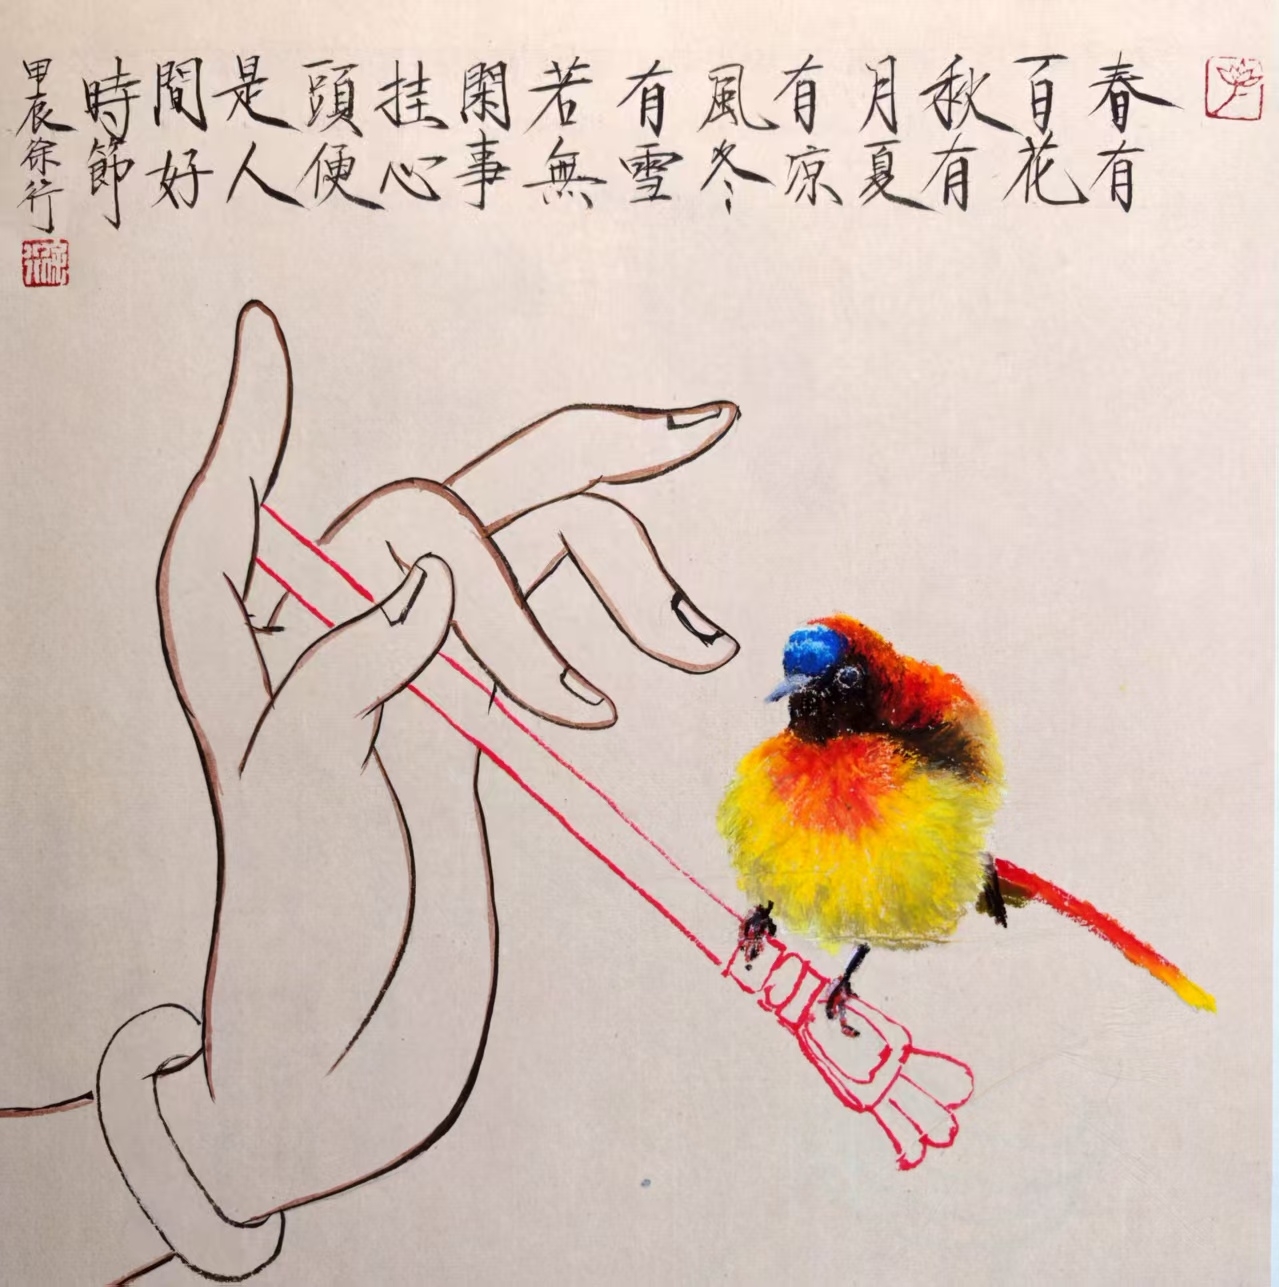 春有
百花
秋有
月夏
有凉
風冬
有雪
若無
閑事
挂心
頭便
是人
間好
時節
甲辰徐行